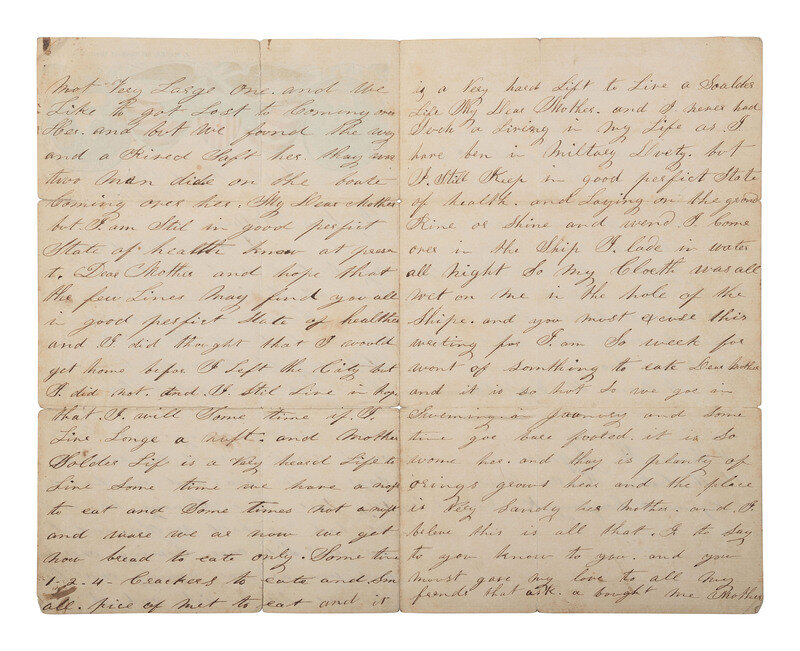 not Very Large one. and We
Like to got Lost to Coming over
Her. and but We found the way
and a Rived Saft her. thay was
two Man dide on the boate
Coming over her. My Dear Mother
but I am Stil in good perfict
State of health know at presen
t. Dear Mother and hope that
the few Lines May find you all
in good perfict State of healthe
and I did thought that I would
get home befor I Left the City but
I did not. and I Stil Live in hop
that I will Some time if I
Live Longe a nuft. and Mother
Soldier Lif is a Very heard Life to
Live Some time we have a nof
to eat and Some times not a nuft
and ware we ar now we get
now bread to eate only. Some time
1-2-4- Crackers to eate and Sm
all. pice of Met to eat and it
is a Very hard Lift to Live a Soalder
Life My Dear Mother. and I never had
Such a Living in my Life as I
have ben in Miltaey Duety. but
I Still Keep in good perfict State
of healthe. and Laying on the ground
Rine or Shine and wend I Come
over in the Ship I lade in water
all night So my Cloeth was all
wet on me in the hole of the
Shipe. and you must excuse this
weeting for I am So week for
wont of somthing to eate Dear Mother
and it is so hot So we goe in
Sweming in January and some
time goe bare footed. it is So
wome her. and thay is planty of
orings grows hear and the place
is Very Sandy her Mother. and I
beleve this is all that I to Say
to you know to you. and you
moust gave my love to all my
frends that ask. a bought me Mother